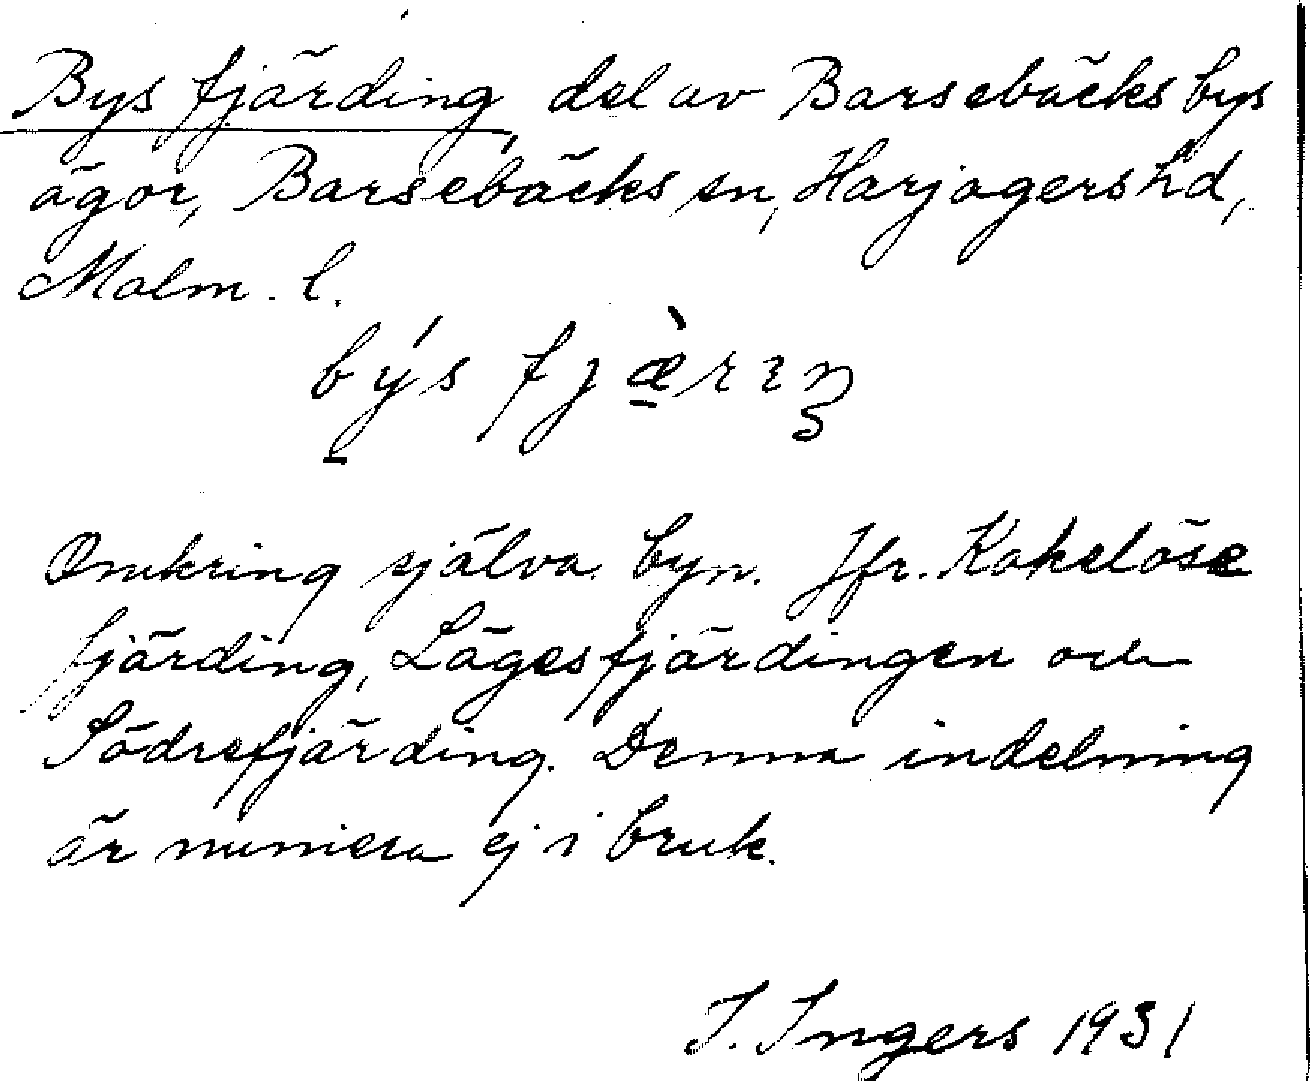 Bys fjärding, del av Barsebäcks bys
ägor, Barsebäcks sn, Harjagers hd,
Malm. l.
býs fjæ̀rıŋ
Omkring själva byn. Jfr. Kakelöse
fjärding, Lägesfjärdingen och
Södrefjärding. Denna indelning
är numera ej i bruk.
I. Ingers 1931